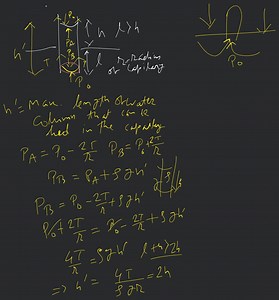 P₀
h' h l>h
P_A
T l r=Radius
P_B of capillary
P₀
P₀
h' = Max. length of water
column that can be
held in the capillary
P_A = P₀ - 2T/r P_B = P₀ + 2T/r
P_B = P_A + ρgh'
P_B = P₀ - 2T/r + ρgh'
P₀ + 2T/r = P₀ - 2T/r + ρgh'
4T/r = ρgh' l+h>2h
⇒ h' = 4T/ρgr = 2h